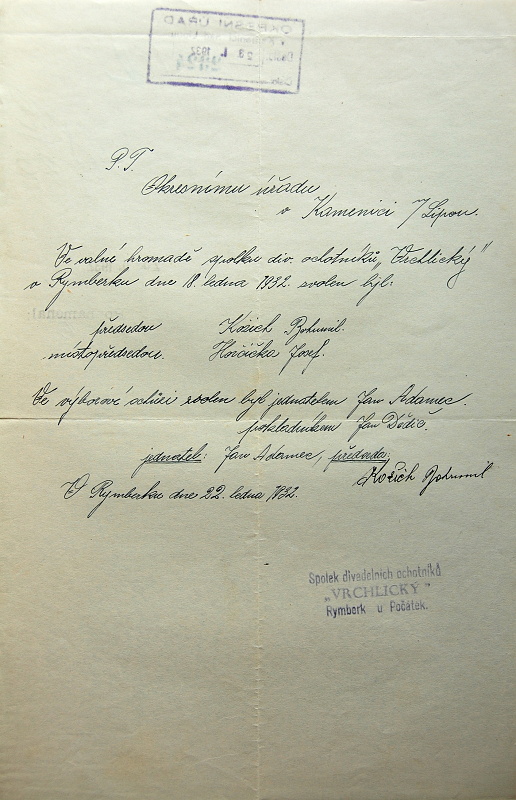 OKRESNÍ ÚŘAD
23. I. 1932
P. T.
Okresnímu úřadu
v Kamenici n/Lipou.
Ve valné hromadě spolku div. ochotníků „Vrchlický"
v Rymberku dne 18. ledna 1932. zvolen byl:
předsedou Kožich Bohumil.
místopředsedou. Horčička Josef.
Ve výborové schůzi zvolen byl jednatelem Jan Adamec.
pokladníkem Jan Dědič.
jednatel: Jan Adamec, předseda:
Kožich Bohumil
V Rymberku dne 22. ledna 1932.
Spolek divadelních ochotníků
„VRCHLICKÝ"
Rymberk u Počátek.